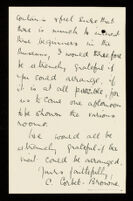 contains & I feel sure that
there is much to interest
new beginners in the
Museum, I would therefore
be extremely grateful if
you could arrange, if
it is at all possible, for
us to come one afternoon
& be shewn the various
rooms.
We would all be
extremely grateful if the
visit could be arranged.
Yours faithfully,
C. Corbet-Browne